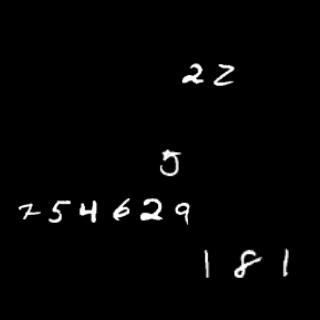 22
5
754629
181